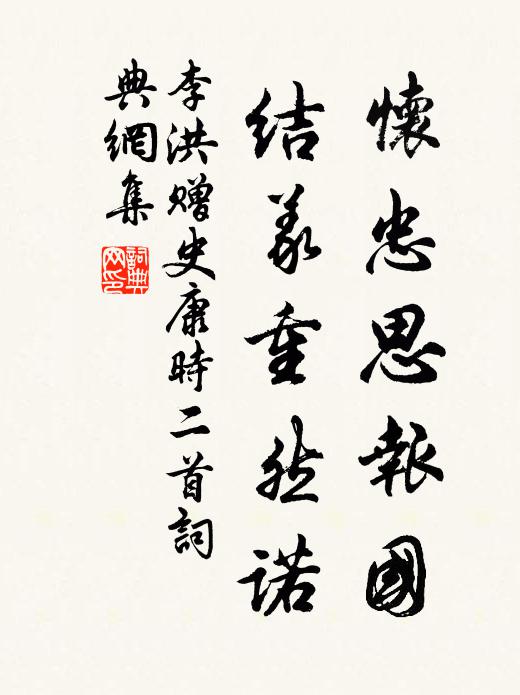 懷忠思報國
結義重然諾
李洪贈史康時二首詞
典網集
詞典
网印